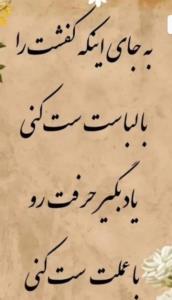 به جای اینکه کفشت را
بالباست ست کنی
یاد بگیر حرفت رو
با عملت ست کنی